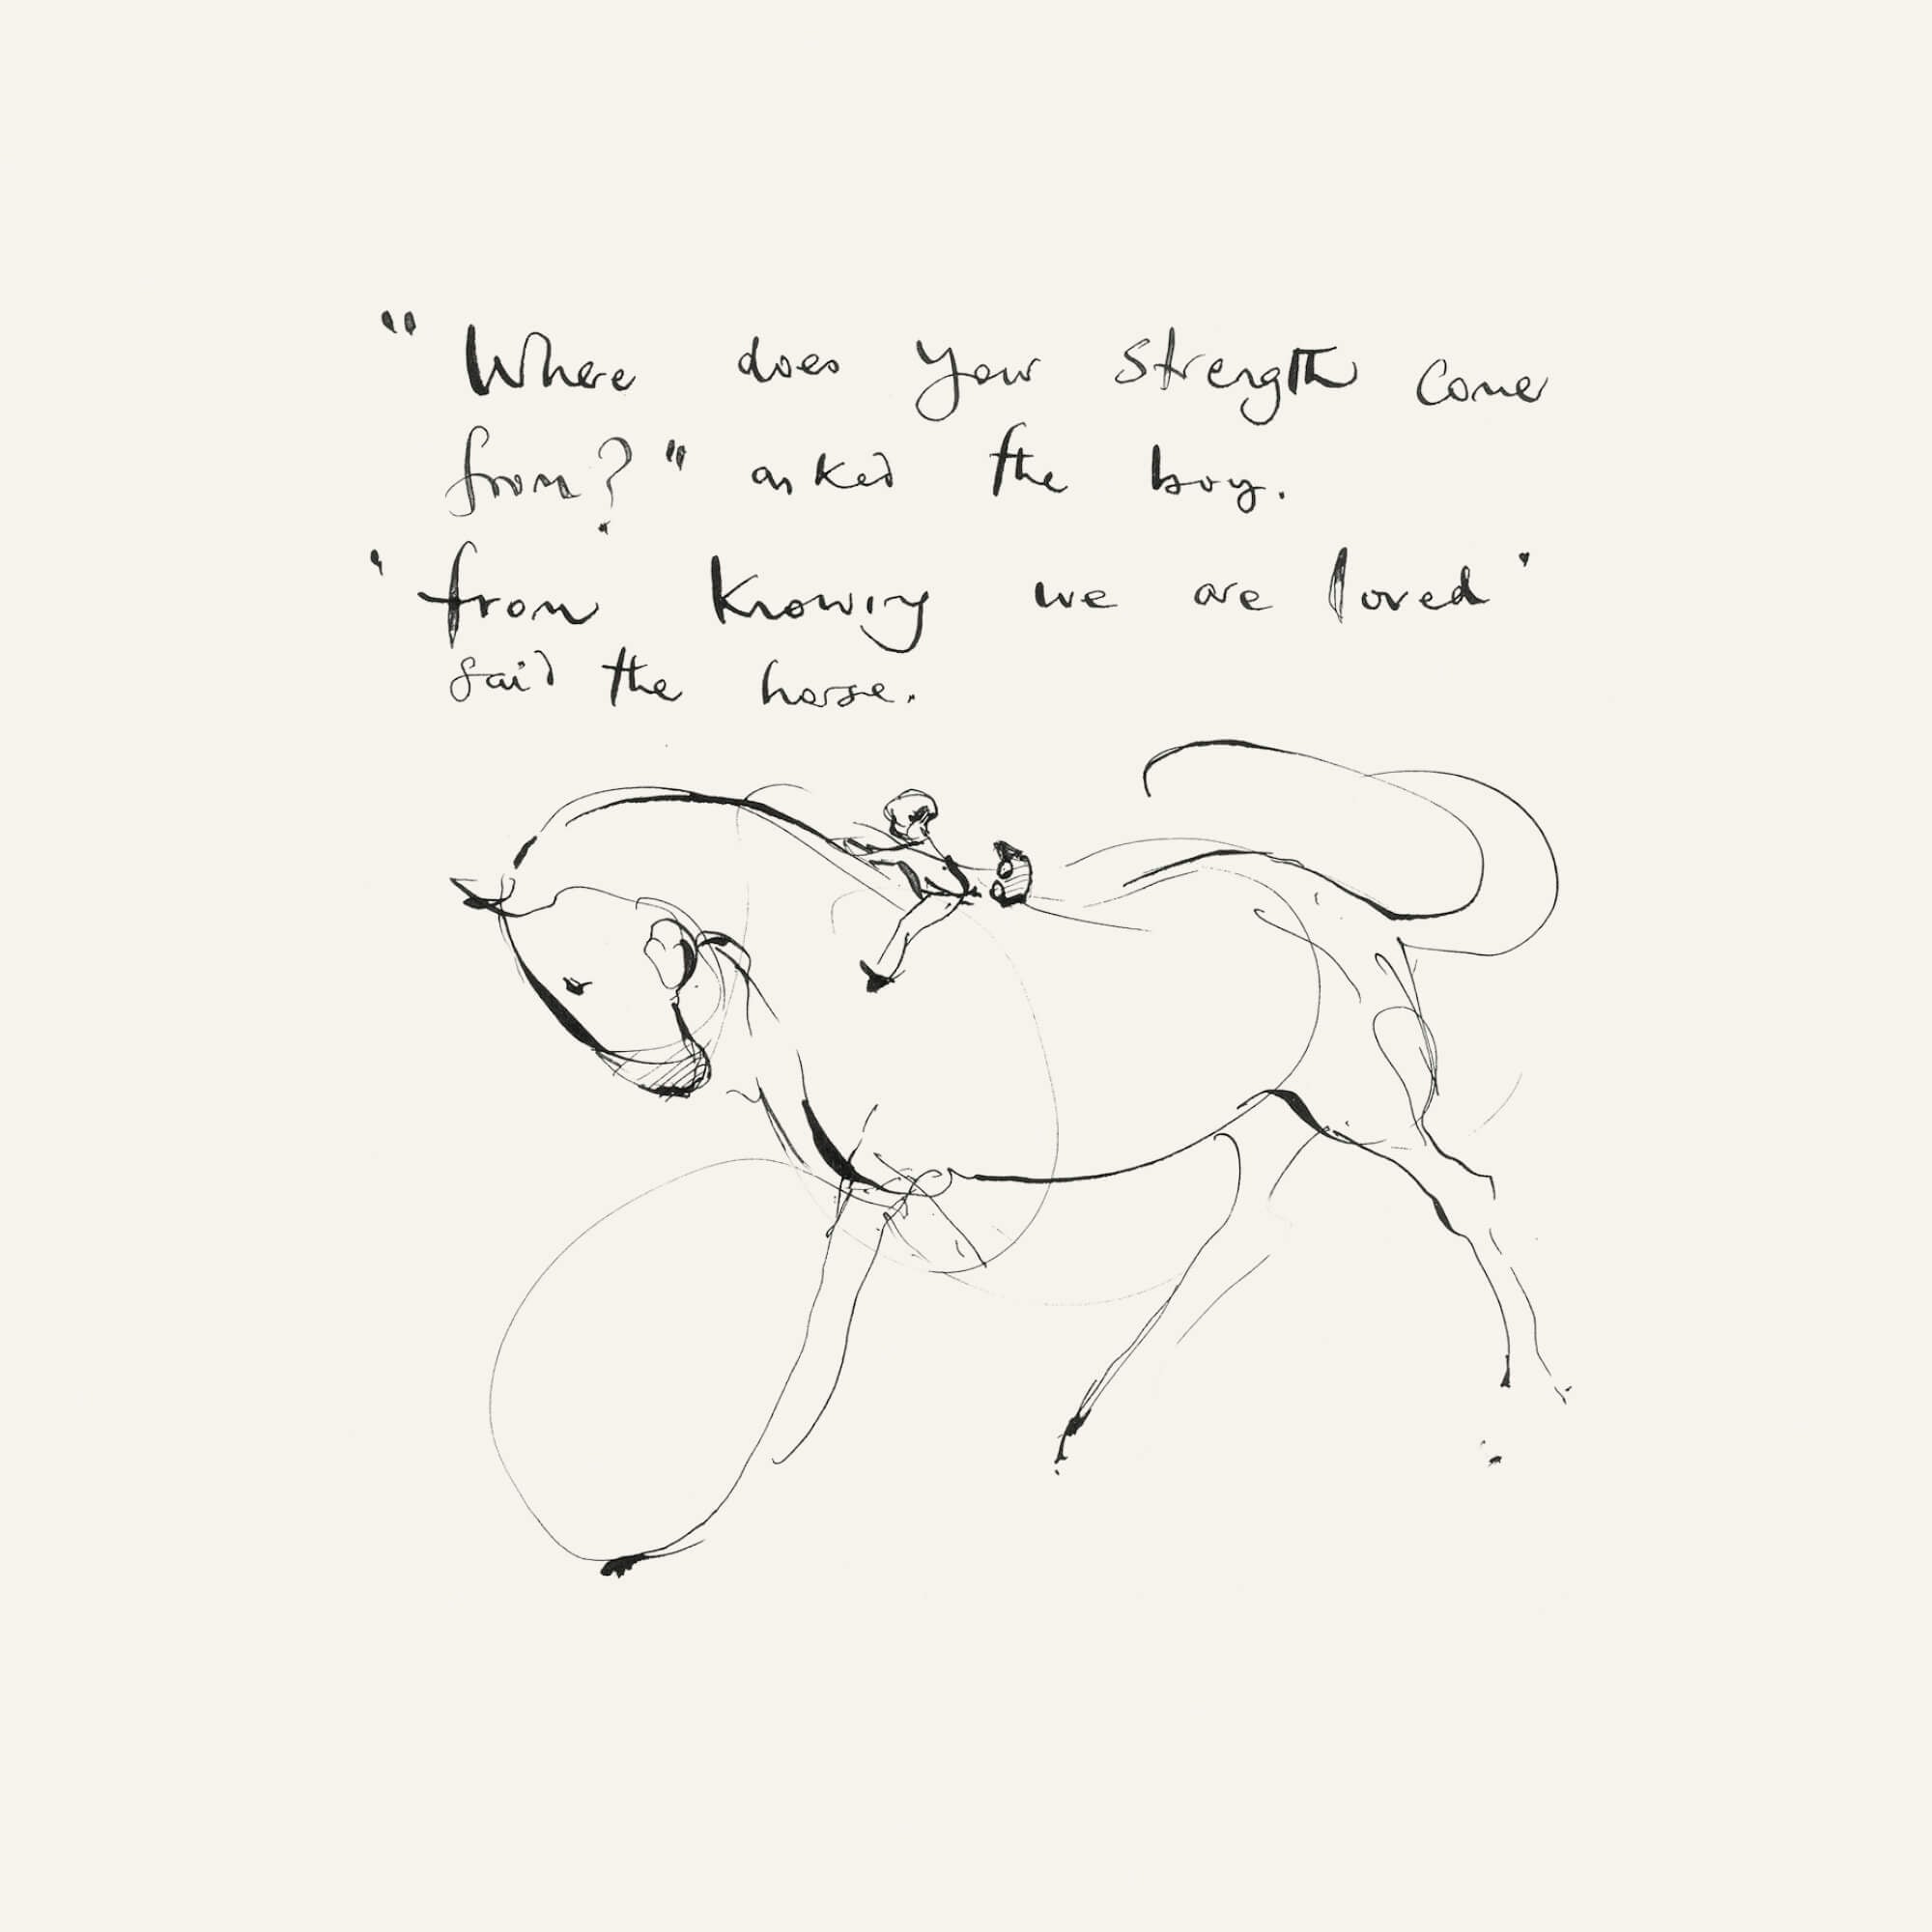 "Where does your strength come
from?" asked the boy.
'from knowing we are loved'
said the horse.